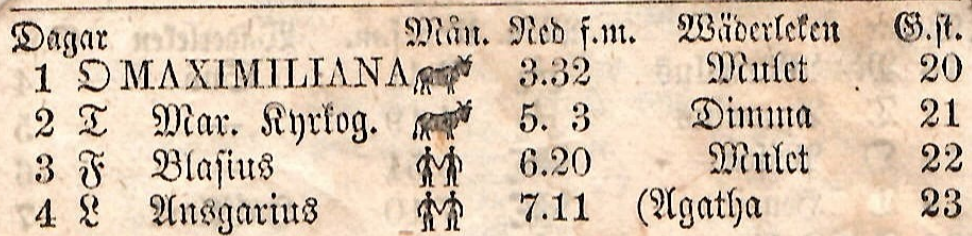 Dagar Mån. Ned f.m. Wäderleken G.st.
1 O MAXIMILIANA 3.32 Mulet 20
2 T Mar. Kyrkog. 5. 3 Dimma 21
3 F Blasius 6.20 Mulet 22
4 L Ansgarius 7.11 (Agatha 23